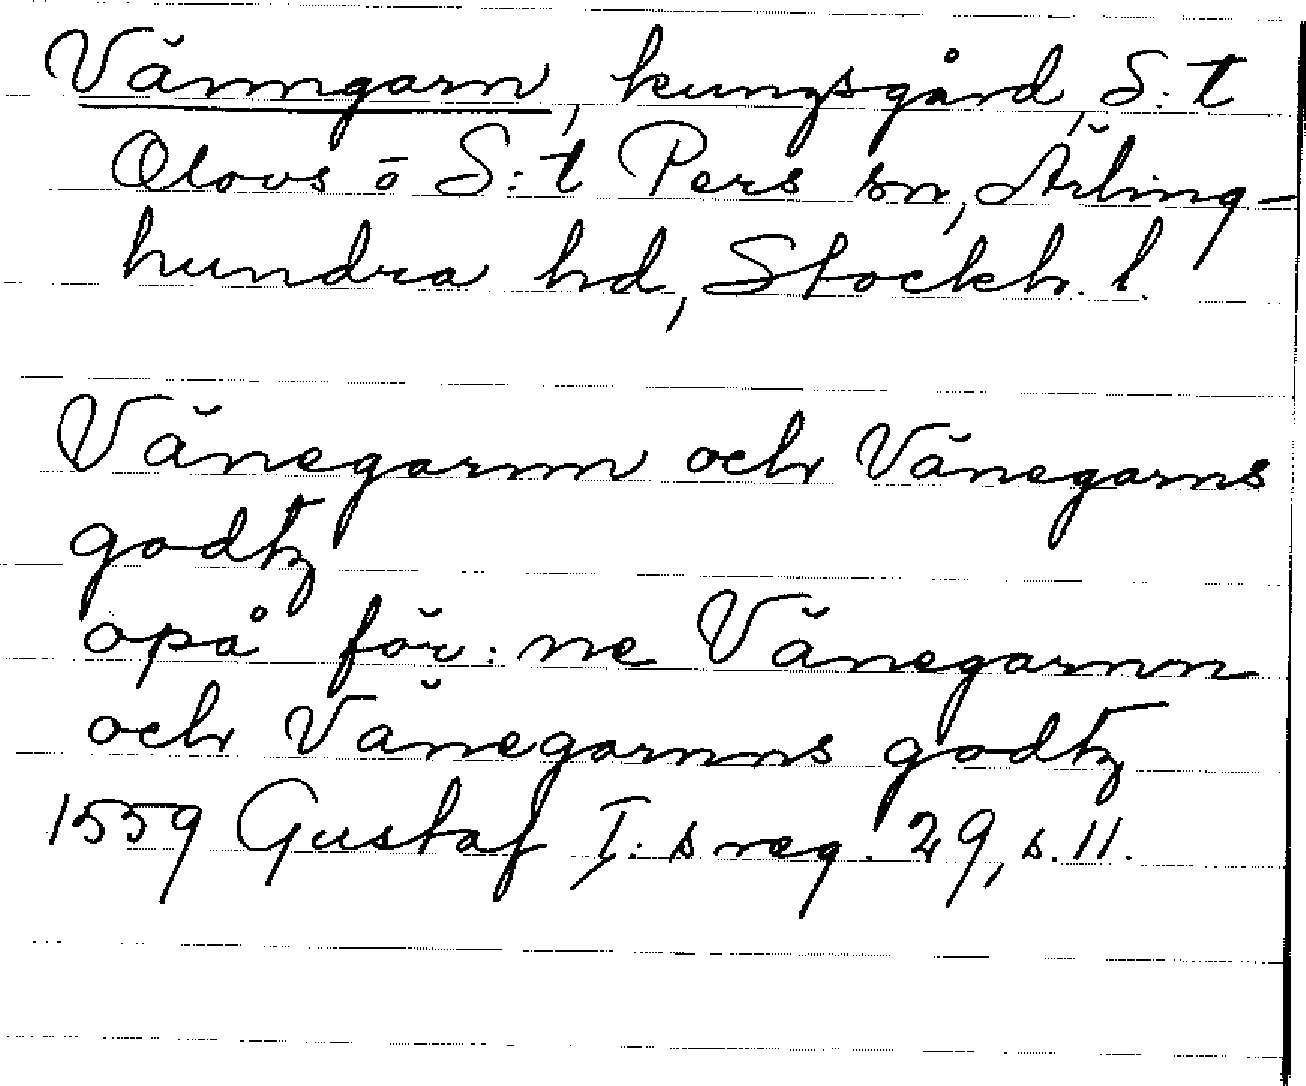 Vänngarn, kungsgård, S:t
Olovs o S:t Pers sn, Ärling-
hundra hd, Stockh. l.
Vänegarnn och Vänegarns
godtz
opå för:ne Vänegarnn
och Vänegarnns godtz
1559 Gustaf I:s reg. 29, s. 11.